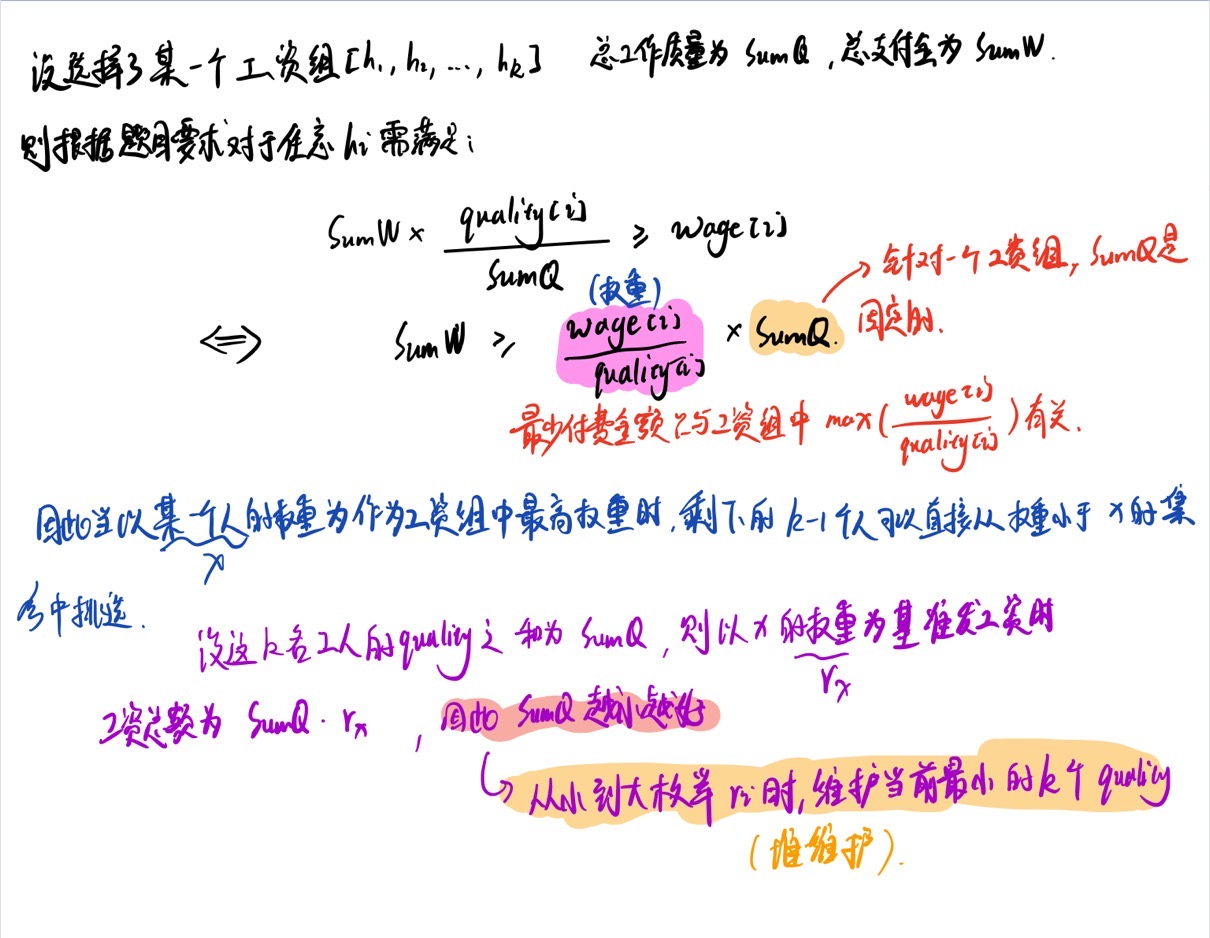 设选择了某一个工资组[h₁, h₂, ..., hk] 总工作质量为 SumQ, 总支付金为 SumW.
则根据题目要求对于任意 hi 需满足:
SumW × quality[i] / SumQ ≥ wage[i]
(权重)
⇔ SumW ≥ wage[i] / quality[i] × SumQ.
→ 针对一个工资组, SumQ是
固定的.
最少付费金额只与工资组中 max(wage[i] / quality[i])有关.
因此当以某一个人的权重为作为工资组中最高权重时, 剩下的 k-1个人可以直接从权重小于 x 的集
x
合中挑选.
设这 k 名工人的quality之和为 SumQ, 则以 x 的权重为基准发工资时
rx
工资总额为 SumQ · rx , 因此 SumQ 越小越好
↳ 从小到大枚举 ri 时, 维护当前最小的 k个 quality
(堆维护).